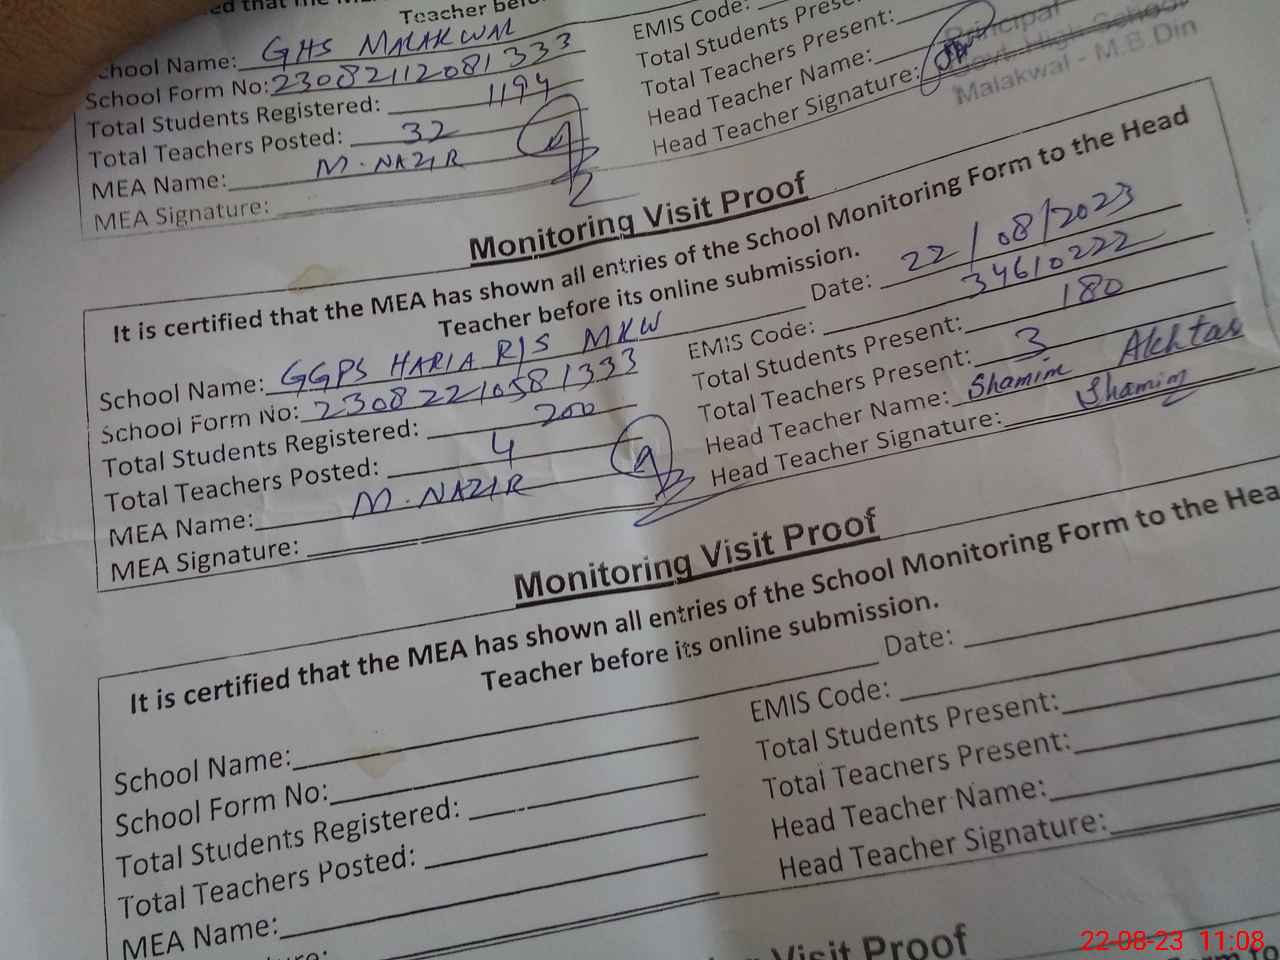 ed that the
Teacher bef
School Name: GHS MALAKWAL
EMIS Code:
School Form No: 23082112081333
Total Students Prese
Total Students Registered: 1194
Total Teachers Present:
Total Teachers Posted: 32
Head Teacher Name:
MEA Name: M. NAZIR
Head Teacher Signature:
MEA Signature:
Principal
Govt. High School
Malakwal - M.B.Din
Monitoring Visit Proof
It is certified that the MEA has shown all entries of the School Monitoring Form to the Head
Teacher before its online submission.
Date: 22/08/2023
School Name: GGPS HARIA R/S MKW
EMIS Code: 34610222
School Form No: 23082210581333
Total Students Present: 180
Total Students Registered: 200
Total Teachers Present: 3
Total Teachers Posted: 4
Head Teacher Name: Shamim Akhtar
MEA Name: M. NAZIR
Head Teacher Signature: Shamim
MEA Signature:
Monitoring Visit Proof
It is certified that the MEA has shown all entries of the School Monitoring Form to the Hea
Teacher before its online submission.
Date:
School Name:
EMIS Code:
School Form No:
Total Students Present:
Total Students Registered:
Total Teachers Present:
Total Teachers Posted:
Head Teacher Name:
MEA Name:
Head Teacher Signature:
ure:
Visit Proof
Form to
22-08-23 11:08